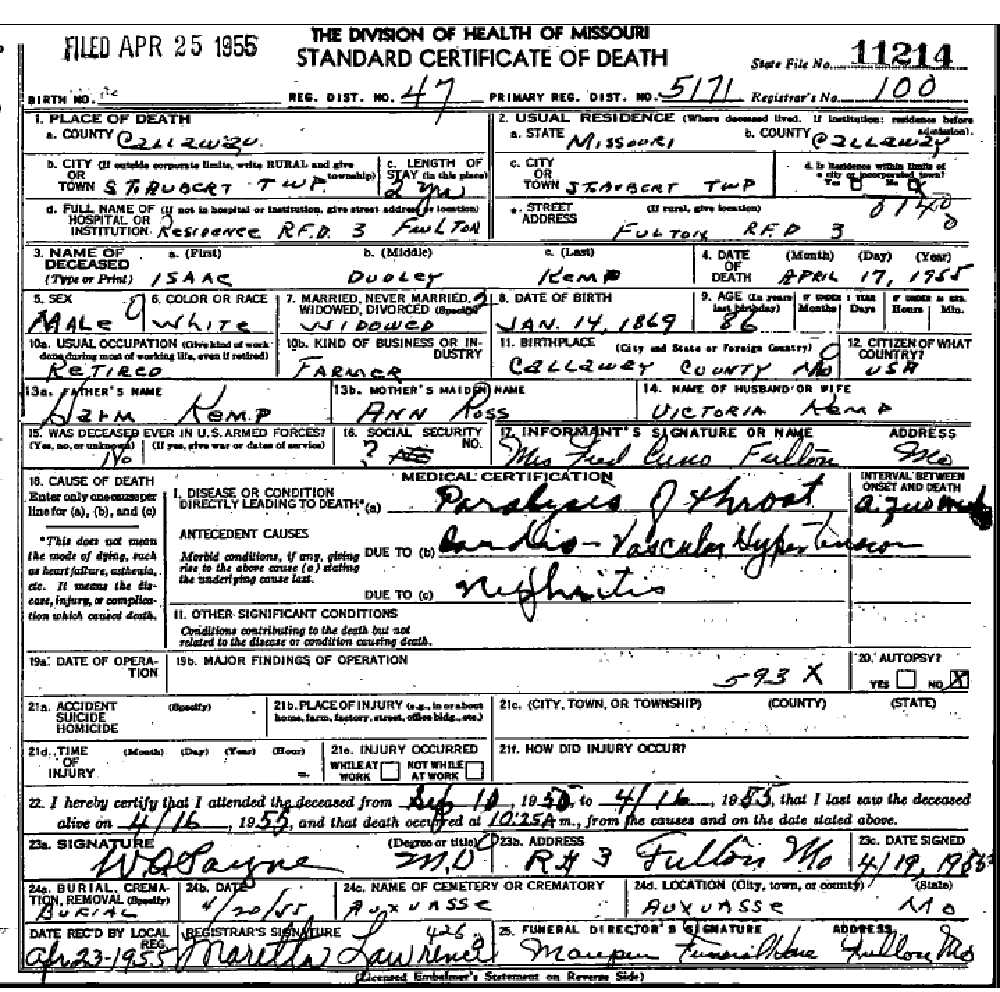 FILED APR 25 1955
THE DIVISION OF HEALTH OF MISSOURI
STANDARD CERTIFICATE OF DEATH
State File No. 11214
BIRTH NO. REG. DIST. NO. 47 PRIMARY REG. DIST. NO. 5171 Registrar's No. 100
1. PLACE OF DEATH
a. COUNTY Callaway
2. USUAL RESIDENCE (Where deceased lived. If institution: residence before admission).
a. STATE MISSOURI b. COUNTY Callaway
b. CITY (If outside corporate limits, write RURAL and give township) OR TOWN ST. AUBERT TWP
c. LENGTH OF STAY (in this place) 2 yrs
c. CITY OR TOWN ST. AUBERT TWP
d. Is Residence within limits of a city or incorporated town? Yes No
d. FULL NAME OF (If not in hospital or institution, give street address or location) HOSPITAL OR INSTITUTION Residence R.F.D. 3 FULTON
e. STREET ADDRESS (If rural, give location) FULTON RFD 3
3. NAME OF DECEASED (Type or Print) a. (First) ISAAC b. (Middle) DUDLEY c. (Last) KEMP
4. DATE OF DEATH (Month) (Day) (Year) APRIL 17, 1955
5. SEX MALE
6. COLOR OR RACE WHITE
7. MARRIED, NEVER MARRIED, WIDOWED, DIVORCED (Specify) WIDOWED
8. DATE OF BIRTH JAN. 14, 1869
9. AGE (In years last birthday) 86 IF UNDER 1 YEAR Months Days IF UNDER 24 HRS. Hours Min.
10a. USUAL OCCUPATION (Give kind of work done during most of working life, even if retired) RETIRED
10b. KIND OF BUSINESS OR INDUSTRY FARMER
11. BIRTHPLACE (City and State or Foreign Country) CALLAWAY COUNTY MO
12. CITIZEN OF WHAT COUNTRY? USA
13a. FATHER'S NAME Harm Kemp
13b. MOTHER'S MAIDEN NAME ANN ROSS
14. NAME OF HUSBAND OR WIFE VICTORIA KEMP
15. WAS DECEASED EVER IN U.S. ARMED FORCES? (Yes, no, or unknown) (If yes, give war or dates of service) No
16. SOCIAL SECURITY NO. ?
17. INFORMANT'S SIGNATURE OR NAME ADDRESS
Mrs Fred Cuno Fulton Mo
18. CAUSE OF DEATH
Enter only one cause per line for (a), (b), and (c)
*This does not mean the mode of dying, such as heart failure, asthenia, etc. It means the disease, injury, or complication which caused death.
MEDICAL CERTIFICATION
INTERVAL BETWEEN ONSET AND DEATH
I. DISEASE OR CONDITION DIRECTLY LEADING TO DEATH* (a) Paralysis of throat
ANTECEDENT CAUSES
Morbid conditions, if any, giving rise to the above cause (a) stating the underlying cause last.
DUE TO (b) Cardio-Vascular Hypertension
DUE TO (c) Nephritis
II. OTHER SIGNIFICANT CONDITIONS
Conditions contributing to the death but not related to the disease or condition causing death.
19a. DATE OF OPERATION
19b. MAJOR FINDINGS OF OPERATION
593 X
20. AUTOPSY? YES NO X
21a. ACCIDENT SUICIDE HOMICIDE (Specify)
21b. PLACE OF INJURY (e.g., in or about home, farm, factory, street, office bldg., etc.)
21c. (CITY, TOWN, OR TOWNSHIP) (COUNTY) (STATE)
21d. TIME OF INJURY (Month) (Day) (Year) (Hour) m.
21e. INJURY OCCURRED WHILE AT WORK NOT WHILE AT WORK
21f. HOW DID INJURY OCCUR?
22. I hereby certify that I attended the deceased from Sep 10, 1950, to 4/16, 1955, that I last saw the deceased
alive on 4/16, 1955, and that death occurred at 10:25A m., from the causes and on the date stated above.
23a. SIGNATURE (Degree or title) M.D
23b. ADDRESS R#3 Fulton Mo
23c. DATE SIGNED 4/19, 1955
24a. BURIAL, CREMATION, REMOVAL (Specify) BURIAL
24b. DATE 4/20/55
24c. NAME OF CEMETERY OR CREMATORY AUXVASSE
24d. LOCATION (City, town, or county) (State) AUXVASSE MO
DATE REC'D BY LOCAL REG. Apr 23-1955
REGISTRAR'S SIGNATURE Maretta Lawrence 426
25. FUNERAL DIRECTOR'S SIGNATURE ADDRESS
Maupin Funeral Home Fulton Mo
(Licensed Embalmer's Statement on Reverse Side)